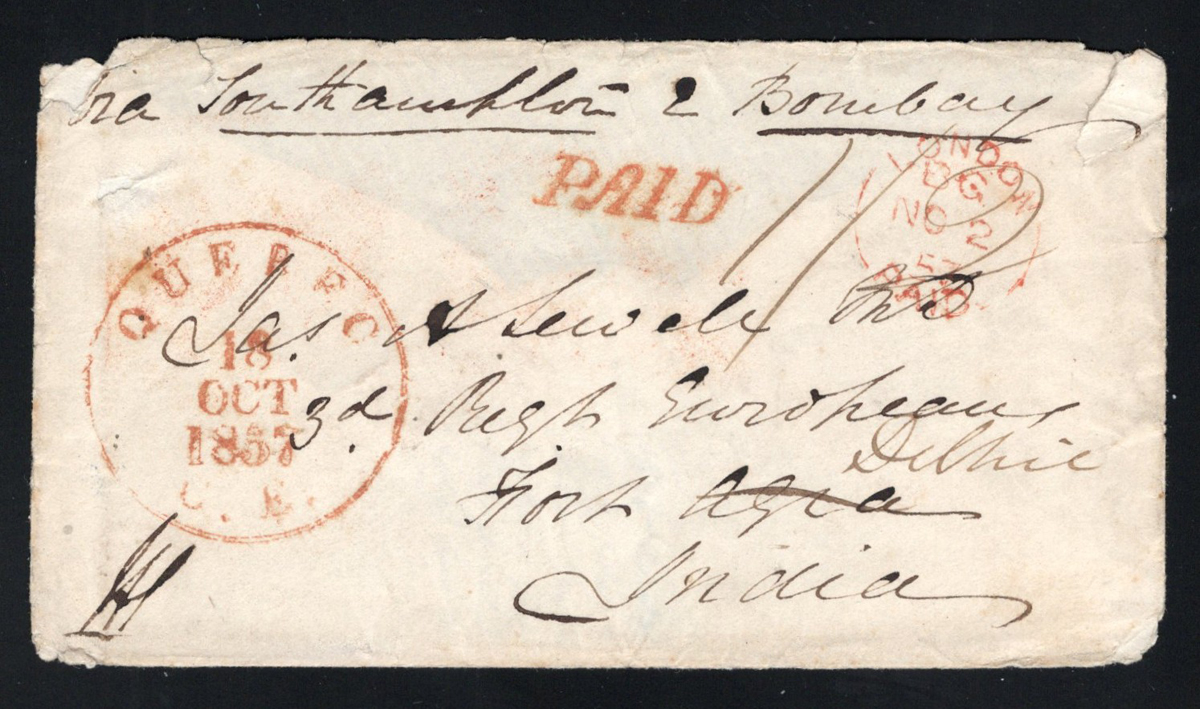 Via Southampton & Bombay
PAID
LONDON
DG
NO 2
57
PAID
QUEBEC
18
OCT
1857
C.E.
Jas. A Sewell
3d. Regt Europeans
Delhie
Fort Agra
India